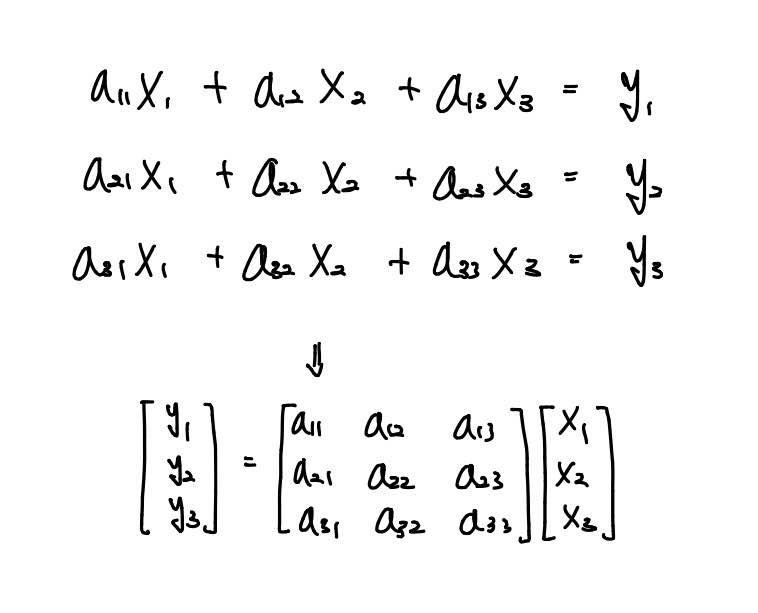 a₁₁x₁ + a₁₂x₂ + a₁₃x₃ = y₁
a₂₁x₁ + a₂₂x₂ + a₂₃x₃ = y₂
a₃₁x₁ + a₃₂x₂ + a₃₃x₃ = y₃
⇓
[y₁] = [a₁₁ a₁₂ a₁₃] [x₁]
[y₂] [a₂₁ a₂₂ a₂₃] [x₂]
[y₃] [a₃₁ a₃₂ a₃₃] [x₃]